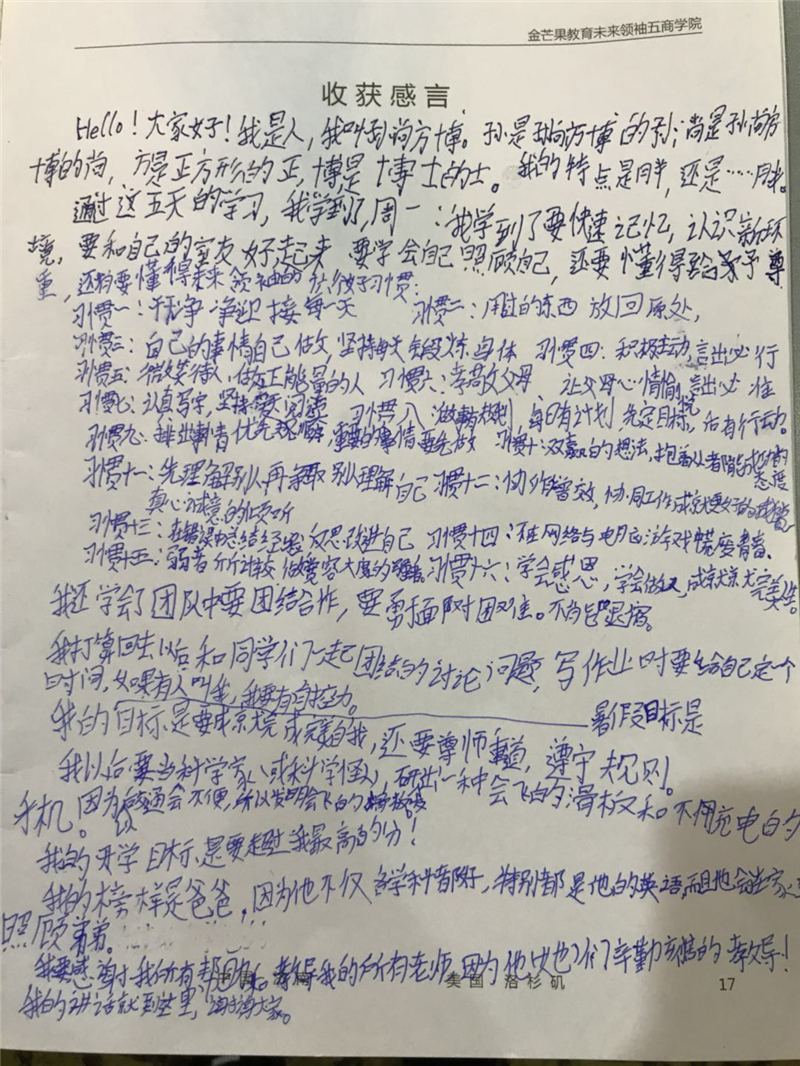 金芒果教育未来领袖五商学院
收获感言
Hello！大家好！我是人，我叫孙尚方博。孙是孙尚方博的孙；尚是孙尚方
博的尚，方是正方形的正，博是博士的士。我的特点是胖，还是……胖。
通过这五天的学习，我学到了，周一：我学到了要快速记忆，认识新环
境，要和自己的室友好起来 要学会自己照顾自己，还要懂得给予尊
重，还要懂得未来领袖的好习惯：
习惯一：干干净净迎接每一天 习惯二：用过的东西放回原处，
习惯三：自己的事情自己做，坚持每天锻炼身体 习惯四：积极主动，言出必行
习惯五：微笑待人，做正能量的人 习惯六：孝敬父母 让父母心情愉 言出必
习惯七：认真写字，坚持每天阅读 习惯八：做事有规划，每日有计划 先定目标，后有行动。
习惯九：优先 重要的事情要先做 习惯十：双赢的想法，抱着
态度
习惯十一：先理解别人再争取别人理解自己 习惯十二：协作增效，协同工作成就更好的
真心诚意的倾听
习惯十三：在错误中总结经验 反思改进自己 习惯十四：不在网络与电脑游戏荒废青春。
习惯十五：弱者斤斤计较 做宽容大度的强者 习惯十六：学会感恩，学会做人，成就完美
我还学会了团队中要团结合作，要勇于面对困难。不
我打算回去以后和同学们一起团结的讨论问题，写作业时要给自己定个
时间，如果有人叫我，我要有自控力。
我的目标是要成就完美自我，还要尊师重道，遵守规则。 暑假目标是
我以后要当科学家（或科学怪人），研出一种会飞的滑板和不用充电的
手机。因为交通会不便，所以发明会飞的滑板
我的开学目标是要超过我最高的分！
我的榜样是爸爸，因为他不仅各学科都好，特别都是他的英语，而且他会在家
照顾弟弟。
我要感谢我所有帮 和教导我的所有老师，因为他们辛勤 的教导！
我的讲话就到这里，谢谢大家。
美国 洛杉矶
17